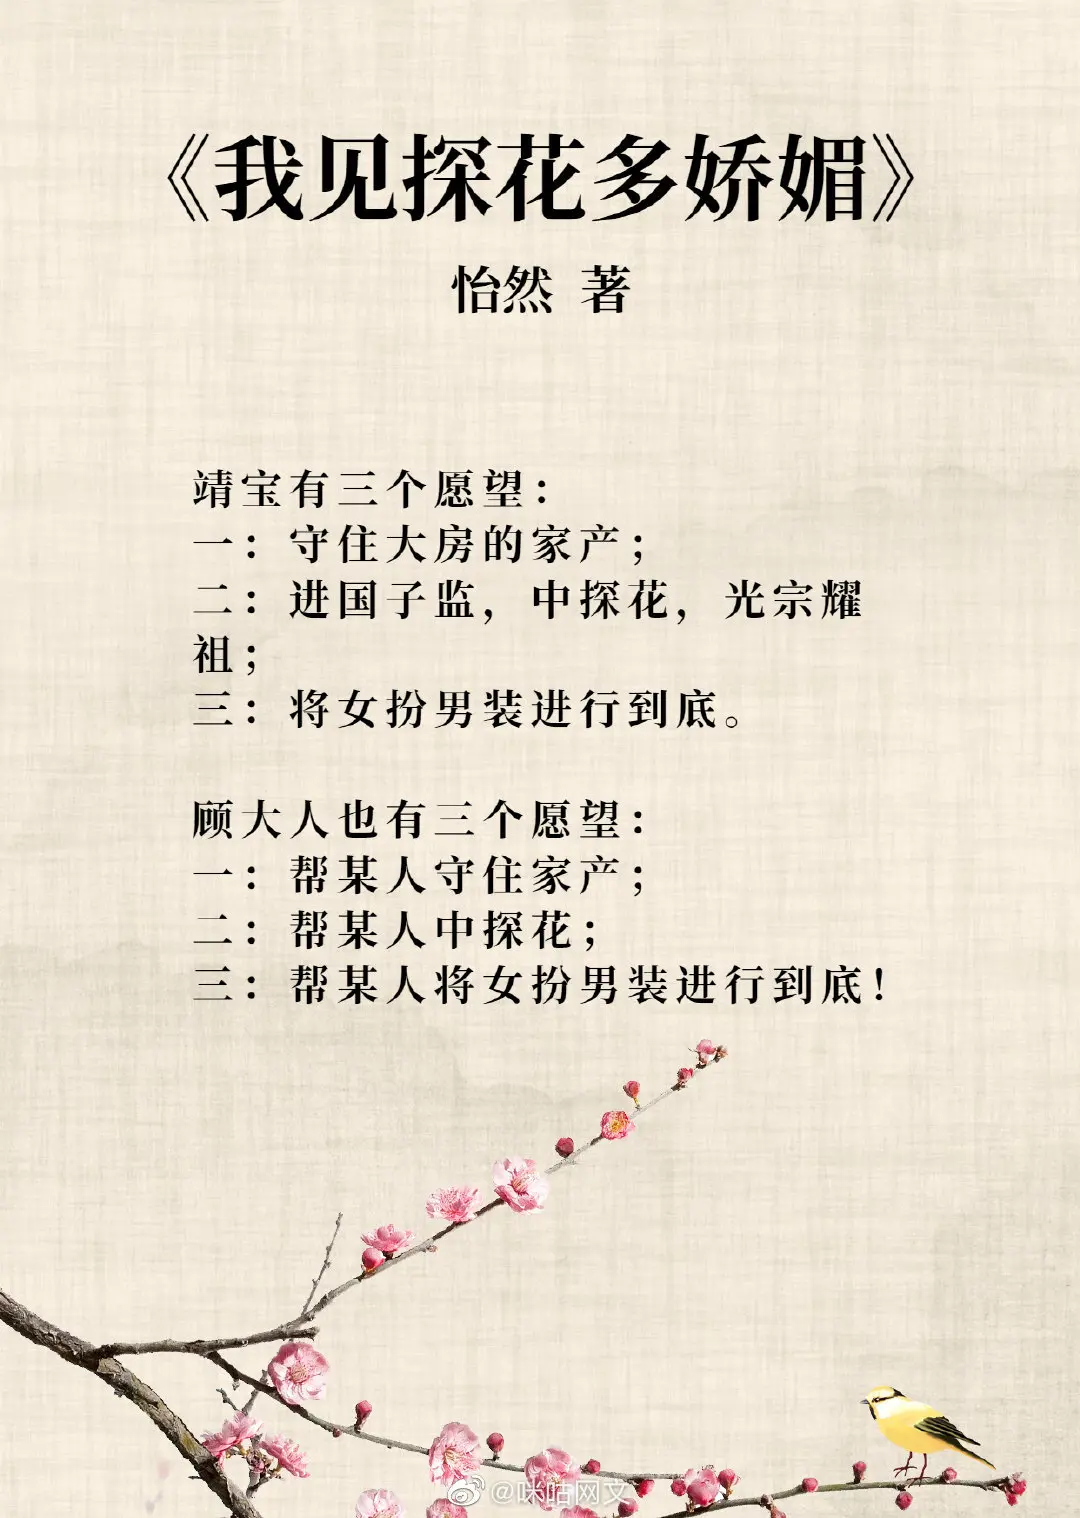 《我见探花多娇媚》
怡然 著
靖宝有三个愿望：
一：守住大房的家产；
二：进国子监，中探花，光宗耀
祖；
三：将女扮男装进行到底。
顾大人也有三个愿望：
一：帮某人守住家产；
二：帮某人中探花；
三：帮某人将女扮男装进行到底！
@咪咕网文